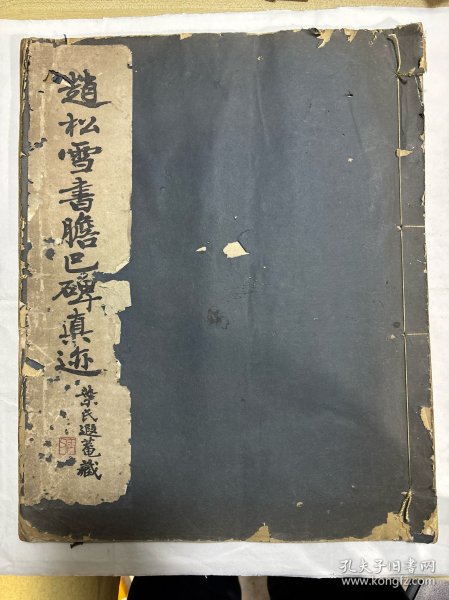 趙松雪書膽巴碑真迹
葉氏遐菴藏
孔夫子旧书网
www.kongfz.com